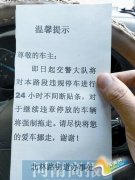 温馨提示
尊敬的车主:
即日起交警大队将
对本路段违规停车进行
24小时不间断贴条,对
于继续违章停放的车辆
将强制拖走。请尽快将您
的爱车挪走,谢谢!
北林路街道办事处